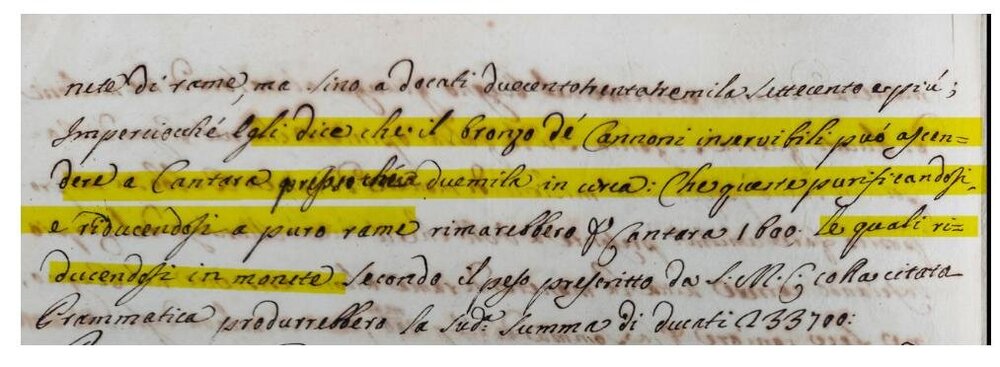 nete di rame, ma sino a docati duecentotrentatremila settecento e più;
Imperciocché Egli dice che il bronzo dé Cannoni inservibili può ascen=
dere a Cantara presso chè a duemila in circa: Che queste purificandosi,
e riducendosi a puro rame rimarebbero p Cantara 1600. le quali ri=
ducendosi in monete secondo il peso prescritto da S. M. C; colla citata
Grammatica produrrebbero la sud.ª summa di ducati 233700: